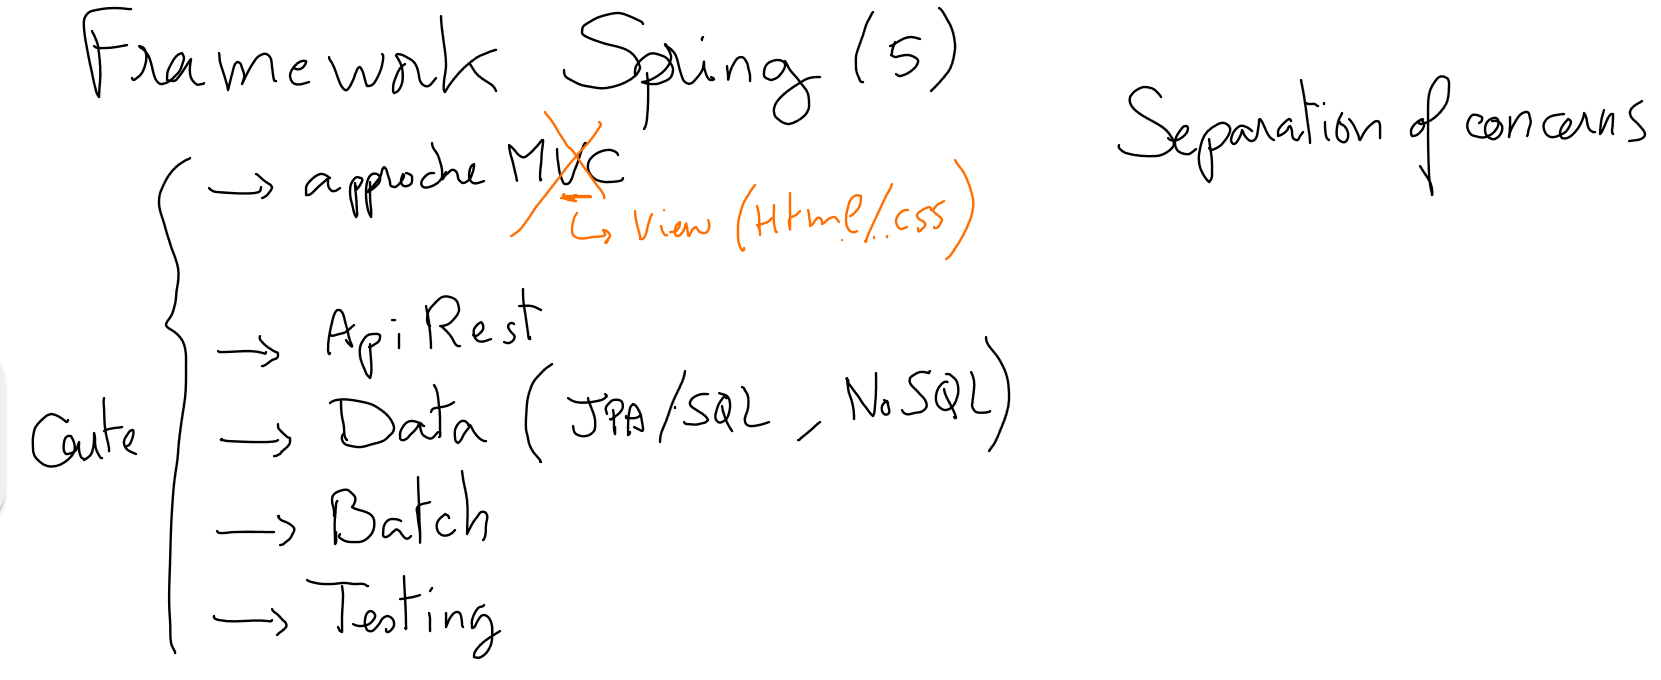 Framework Spring (5)
Separation of concerns
→ approche MVC
↳ View (Html/css)
→ Api Rest
→ Data (JPA/SQL, NoSQL)
→ Batch
→ Testing